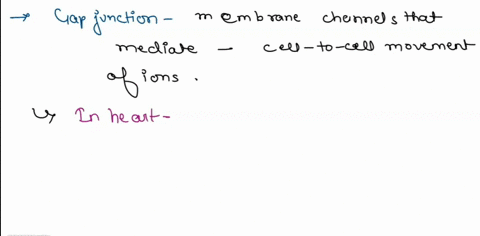 → Gap junction - membrane channels that
mediate - cell-to-cell movement
of ions.
↳ In heart -